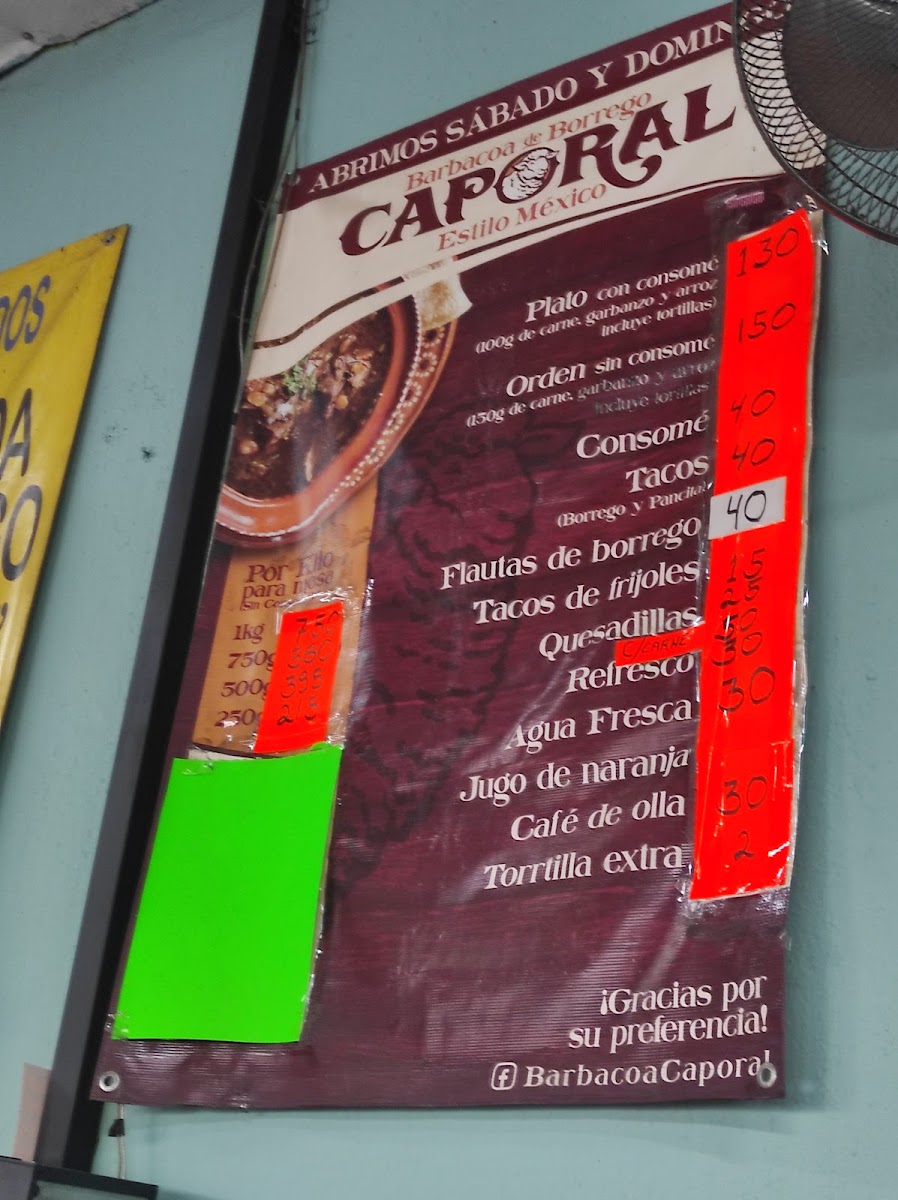 ABRIMOS SÁBADO Y DOMIN
Barbacoa de Borrego
CAPORAL
Estilo México
Plato con consomé 130
(100g de carne, garbanzo y arroz
incluye tortillas)
Orden sin consomé 150
(150g de carne, garbanzo y arroz
incluye tortillas)
Consomé 40
Tacos 40
(Borrego y Pancita)
Flautas de borrego 40
Tacos de frijoles 15
Quesadillas
C/CARNE
Refresco
Agua Fresca 30
Jugo de naranja
Café de olla 30
Torrtilla extra 2
Por Kilo
para mesa
1kg
750g
500g
250g 215
¡Gracias por
su preferencia!
BarbacoaCaporal
DOS
DA